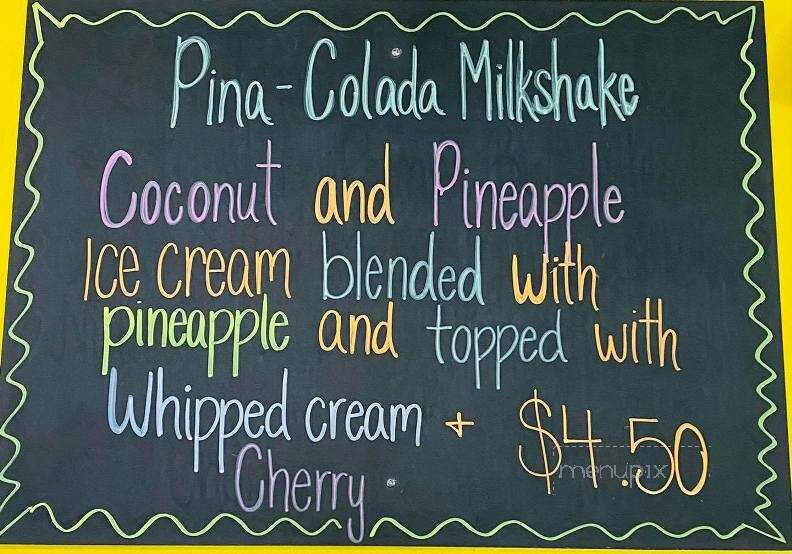 Pina-Colada Milkshake
Coconut and Pineapple
Ice cream blended with
pineapple and topped with
Whipped cream + $4.50
Cherry
menupix